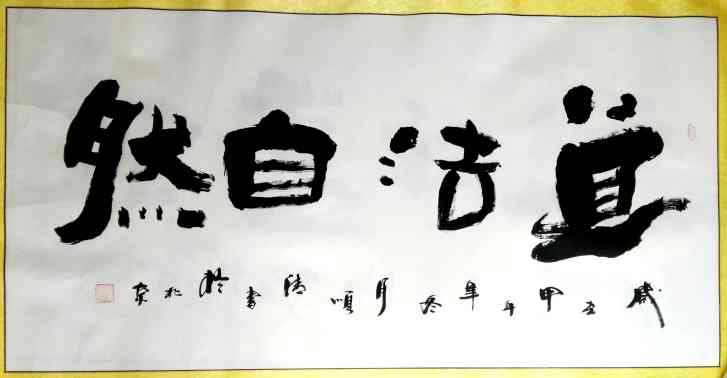 道法自然
歲甲午年冬月順書於北京